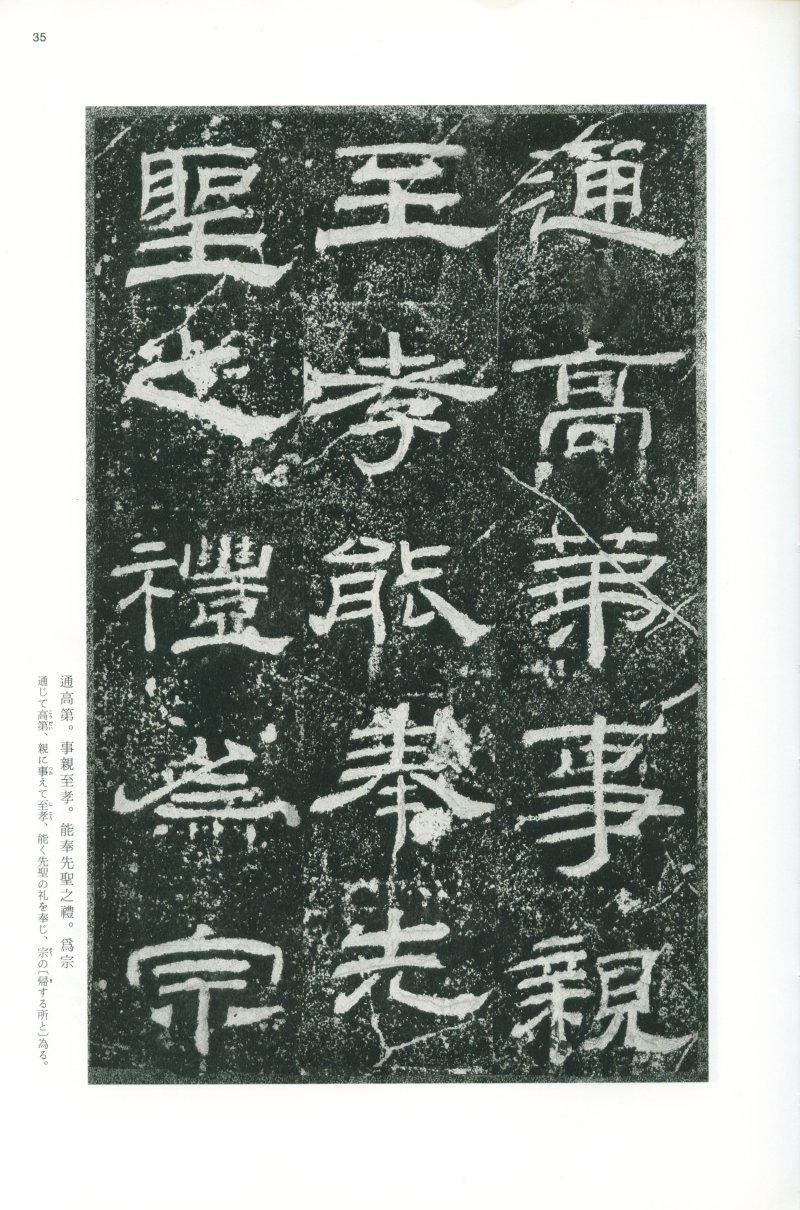 35
通高第事親
至孝能奉先
聖之禮爲宗
通高第。事親至孝。能奉先聖之禮。爲宗
通じて高第、親に事えて至孝、能く先聖の礼を奉じ、宗の〔帰する所と〕為る。